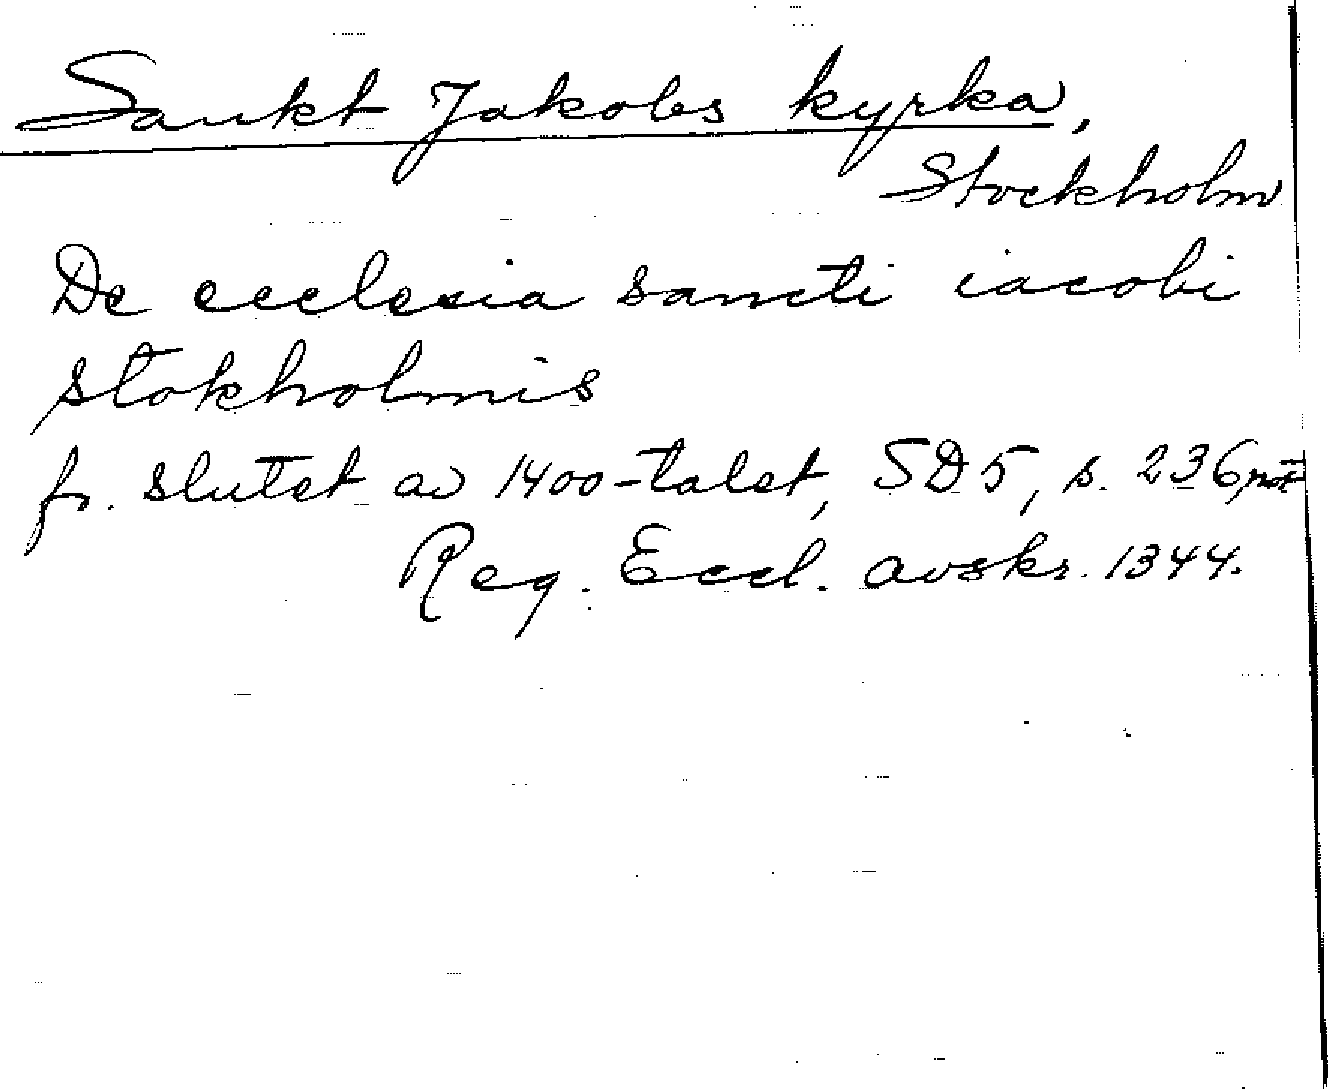 Sankt Jakobs kyrka,
Stockholm
De ecclesia sancti iacobi
stokholmis
fr. slutet av 1400-talet, SD 5, s. 236 not
Reg. Eccl. avskr. 1344.